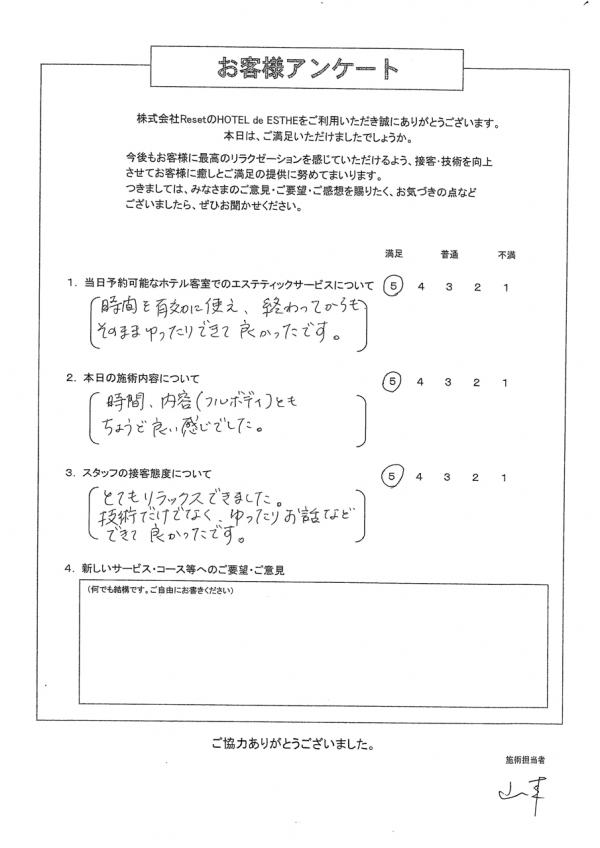 お客様アンケート
株式会社ResetのHOTEL de ESTHEをご利用いただき誠にありがとうございます。
本日は、ご満足いただけましたでしょうか。
今後もお客様に最高のリラクゼーションを感じていただけるよう、接客・技術を向上
させてお客様に癒しとご満足の提供に努めてまいります。
つきましては、みなさまのご意見・ご要望・ご感想を賜りたく、お気づきの点など
ございましたら、ぜひお聞かせください。
満足 普通 不満
1. 当日予約可能なホテル客室でのエステティックサービスについて 5 4 3 2 1
時間を有効に使え、終わってからも
そのままゆったりできて良かったです。
2. 本日の施術内容について 5 4 3 2 1
時間、内容(フルボディ)とも
ちょうど良い感じでした。
3. スタッフの接客態度について 5 4 3 2 1
とてもリラックスできました。
技術だけでなく、ゆったりお話など
できて良かったです。
4. 新しいサービス・コース等へのご要望・ご意見
(何でも結構です。ご自由にお書きください)
ご協力ありがとうございました。
施術担当者
山本